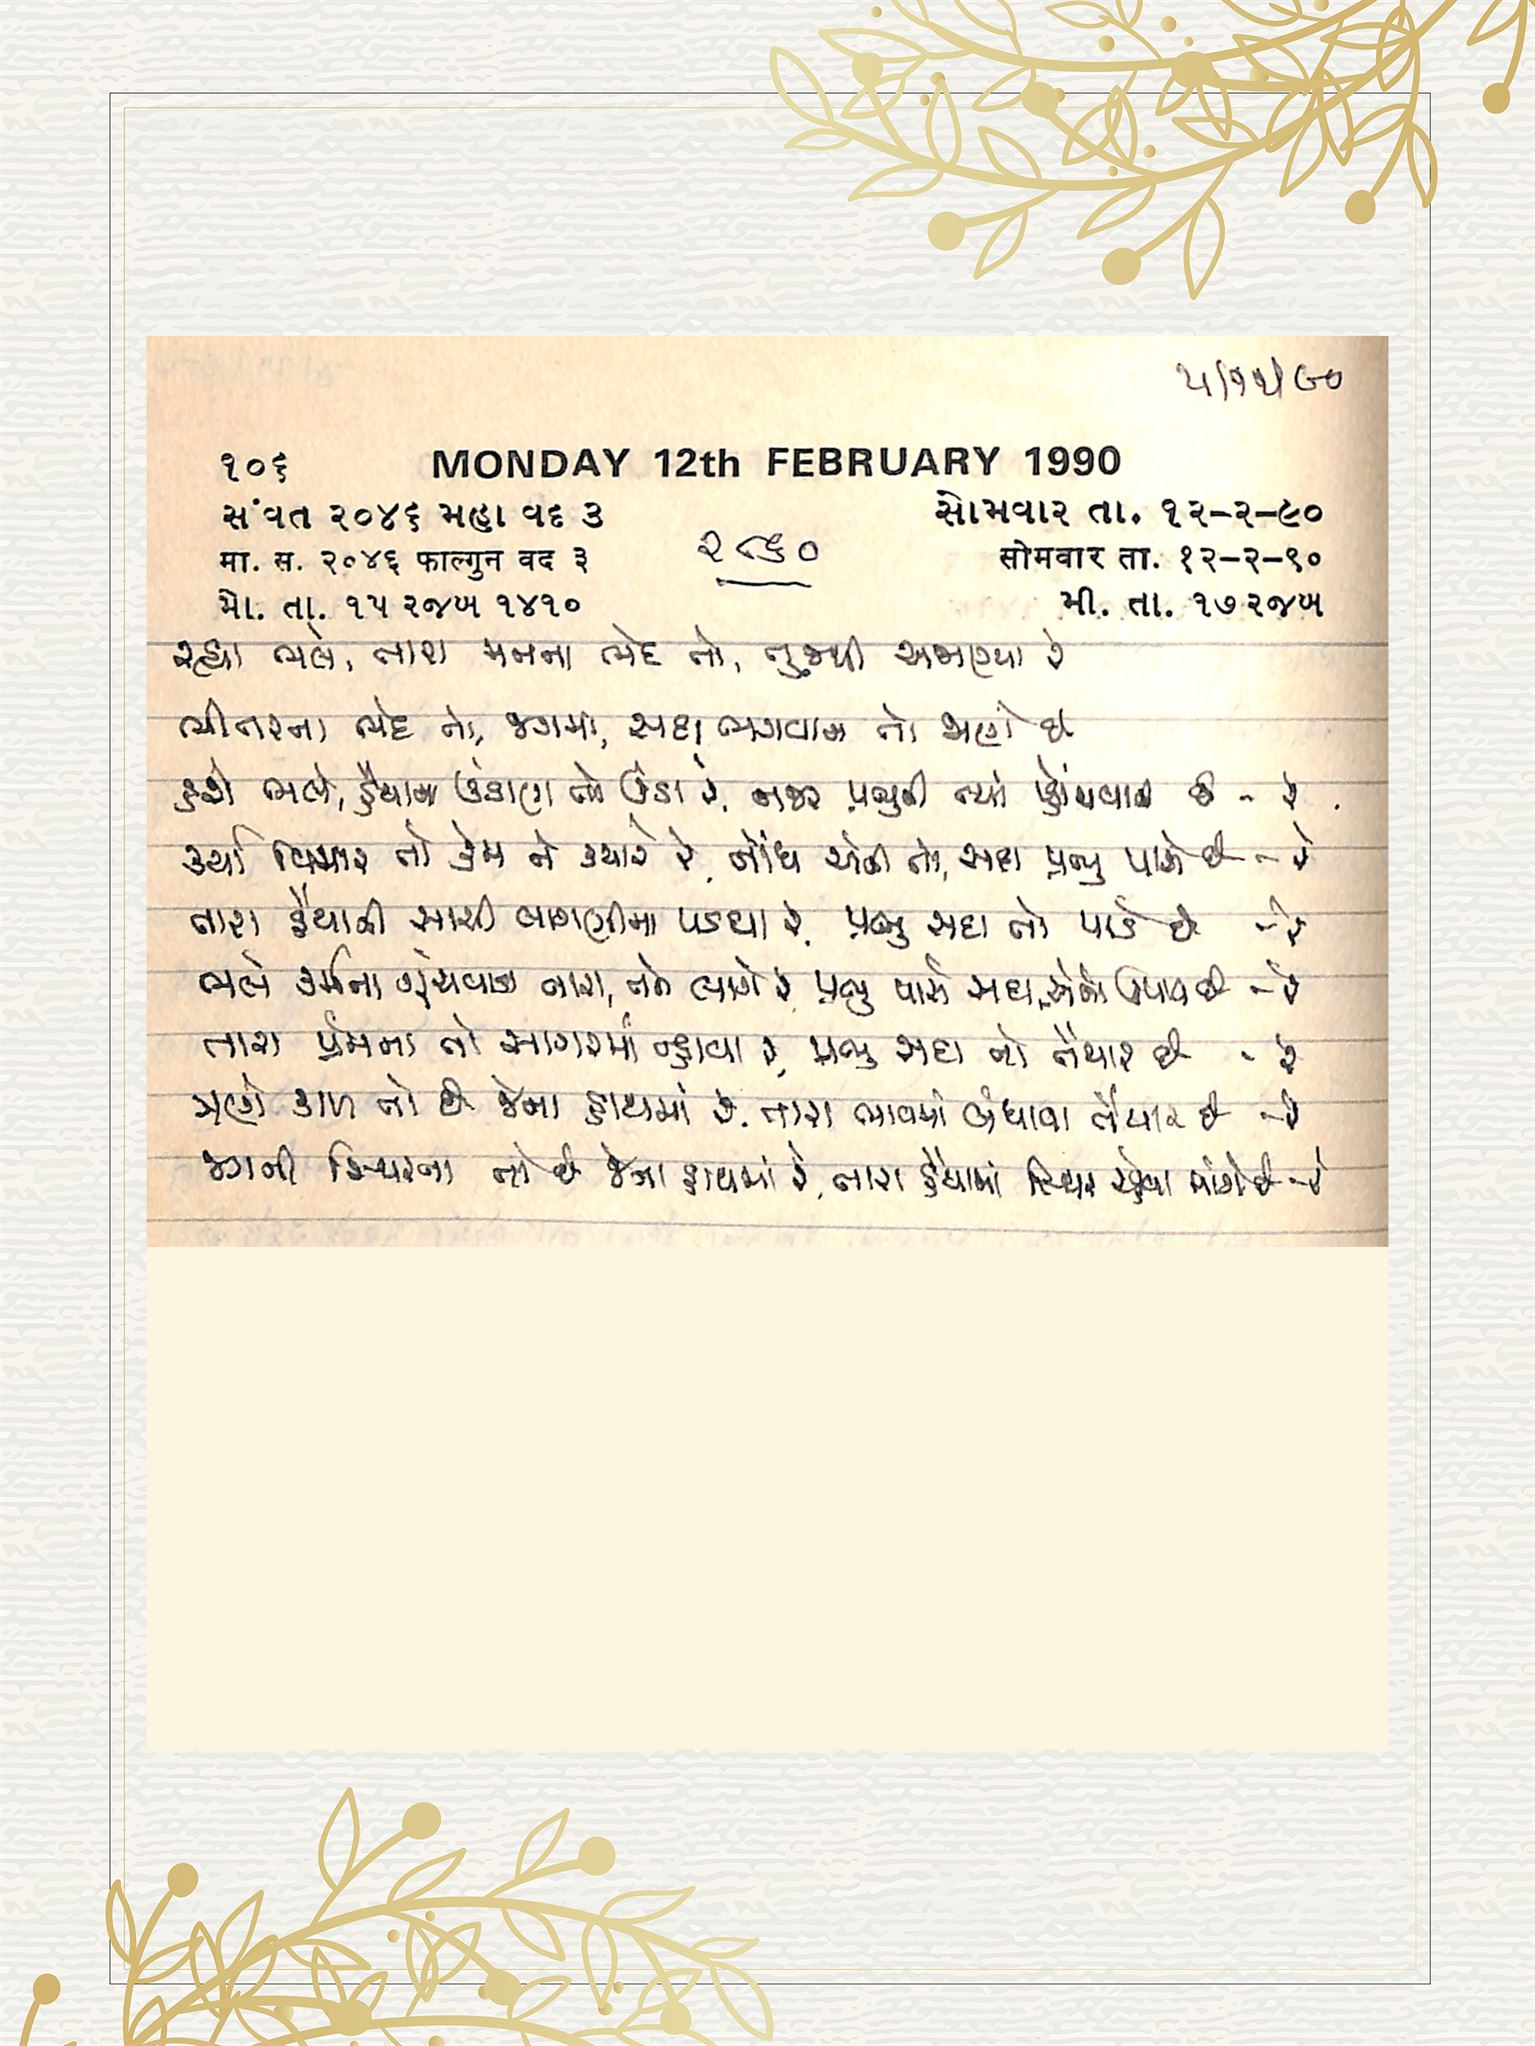 ૫/૧૨/૯૦
૧૦૬ MONDAY 12th FEBRUARY 1990
સંવત ૨૦૪૬ મહા વદ ૩ સોમવાર તા. ૧૨–૨–૯૦
મા. સ. ૨૦૪૬ फाल्गुन वद ३ सोमवार ता. १२–२–९०
મો. તા. ૧૫ રજબ ૧૪૧૦ મી. તા. ૧૭ રજબ
૨૯૬૦
રહ્યા ભલે, તારા મનના ભેદ તો, તુજથી અજાણ્યા રે
ભીતરના ભેદ તો, જગમાં, સદા ભગવાન તો જાણે છે
હશે ભલે, હૈયાના ઉંડાણ તો ઉંડા રે, નજર પ્રભુની ત્યાં પ્હોંચવાની છે - રે
કર્યા વિચાર તો કેમ ને ક્યારે રે, નોંધ એની તો, સદા પ્રભુ પાસે છે - રે
તારા હૈયાની સાચી લાગણીના પડઘા રે, પ્રભુ સદા તો પાડે છે - રે
ભલે કર્મના ગુંચવાડા તારા, તને લાગે રે, પ્રભુ પાસે સદા, એનો ઉપાય છે - રે
તારા પ્રેમના તો સાગરમાં ન્હાવા રે, પ્રભુ સદા તો તૈયાર છે - રે
ત્રણે કાળ તો છે જેના હાથમાં રે, તારા ભાવમાં બંધાવા તૈયાર છે - રે
જગની સ્થિરતા તો છે જેના હાથમાં રે, તારા હૈયામાં સ્થિર રહેવા માંગે છે - રે